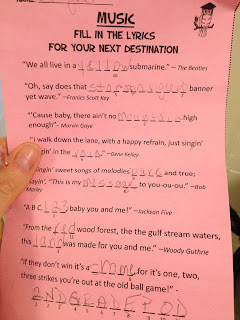 MUSIC
FILL IN THE LYRICS
FOR YOUR NEXT DESTINATION
"We all live in a yellow submarine." – The Beatles
"Oh, say does that starspangled banner
yet wave." –Francis Scott Key
"'Cause baby, there ain't no mountain high
enough"- Marvin Gaye
"I walk down the lane, with a happy refrain, just singin'
singin' in the rain" –Gene Kelley
singing' sweet songs of melodies pure and true;
sayin', "This is my message to you-ou-ou." –Bob
Marley
"A B C, 123 baby you and me!" –Jackson Five
"From the red wood forest, the the gulf stream waters,
this land was made for you and me." –Woody Guthrie
"If they don't win it's a crime for it's one, two,
three strikes you're out at the old ball game!" -
2NDGRADEPOD
1 2 3 4 5 6 7 8 9 10 11